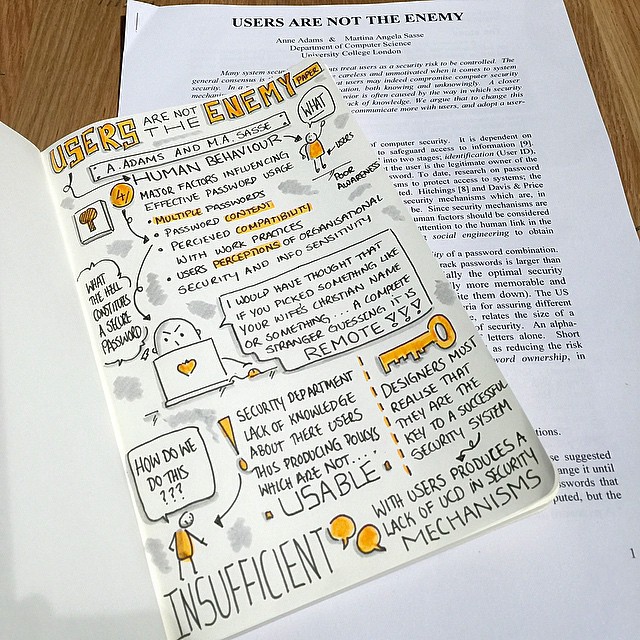 USERS ARE NOT THE ENEMY
Anne Adams & Martina Angela Sasse
Department of Computer Science
University College London
Many system secur
nts treat users as a security risk to be controlled. The
general consensus is
careless and unmotivated when it comes to system
security. In a
ation, both knowing and unknowingly. A closer
vior is often caused by the way in which security
ck of knowledge. We argue that to change this
communicate more with users, and adopt a user-
computer security. It is dependent on
safeguard access to information [9].
into two stages; identification (User ID),
user is the legitimate owner of the
word. To date, research on password
isms to protect access to systems; the
ed. Hitchings [8] and Davis & Price
security mechanisms which are, in
be. Since security mechanisms are
human factors should be considered
attention to the human link in the
social engineering to obtain
ity of a password combination.
ack passwords is larger than
ally the optimal security
y more memorable and
ite them down). The US
ria for assuring different
, relates the size of a
of security. An alpha-
letters alone. Short
as reducing the risk
word ownership, in
tions.
se suggested
ange it until
sswords that
puted, but the
1
USERS ARE NOT THE ENEMY PAPER
A. ADAMS AND M.A. SASSE
HUMAN BEHAVIOUR
WHAT
USERS
POOR
AWARENESS
4
MAJOR FACTORS INFLUENCING
EFFECTIVE PASSWORD USAGE
• MULTIPLE PASSWORDS
• PASSWORD CONTENT
• PERCIEVED COMPATIBILITY
WITH WORK PRACTICES
• USERS PERCEPTIONS OF ORGANISATIONAL
SECURITY AND INFO SENSITIVITY
WHAT
THE HELL
CONSTITUTES
A SECURE
PASSWORD
I WOULD HAVE THOUGHT THAT
IF YOU PICKED SOMETHING LIKE
YOUR WIFES CHRISTIAN NAME
OR SOMETHING... A COMPLETE
STRANGER GUESSING IT IS
REMOTE!!!
! SECURITY DEPARTMENT
LACK OF KNOWLEDGE
ABOUT THERE USERS
THUS PRODUCING POLICYS
WHICH ARE NOT....
USABLE
DESIGNERS MOST
REALISE THAT
THEY ARE THE
KEY TO A SUCCESSFUL
SECURITY SYSTEM
HOW DO WE
DO THIS
???
INSUFFICIENT
WITH USERS PRODUCES A
LACK OF UCD IN SECURITY
MECHANISMS